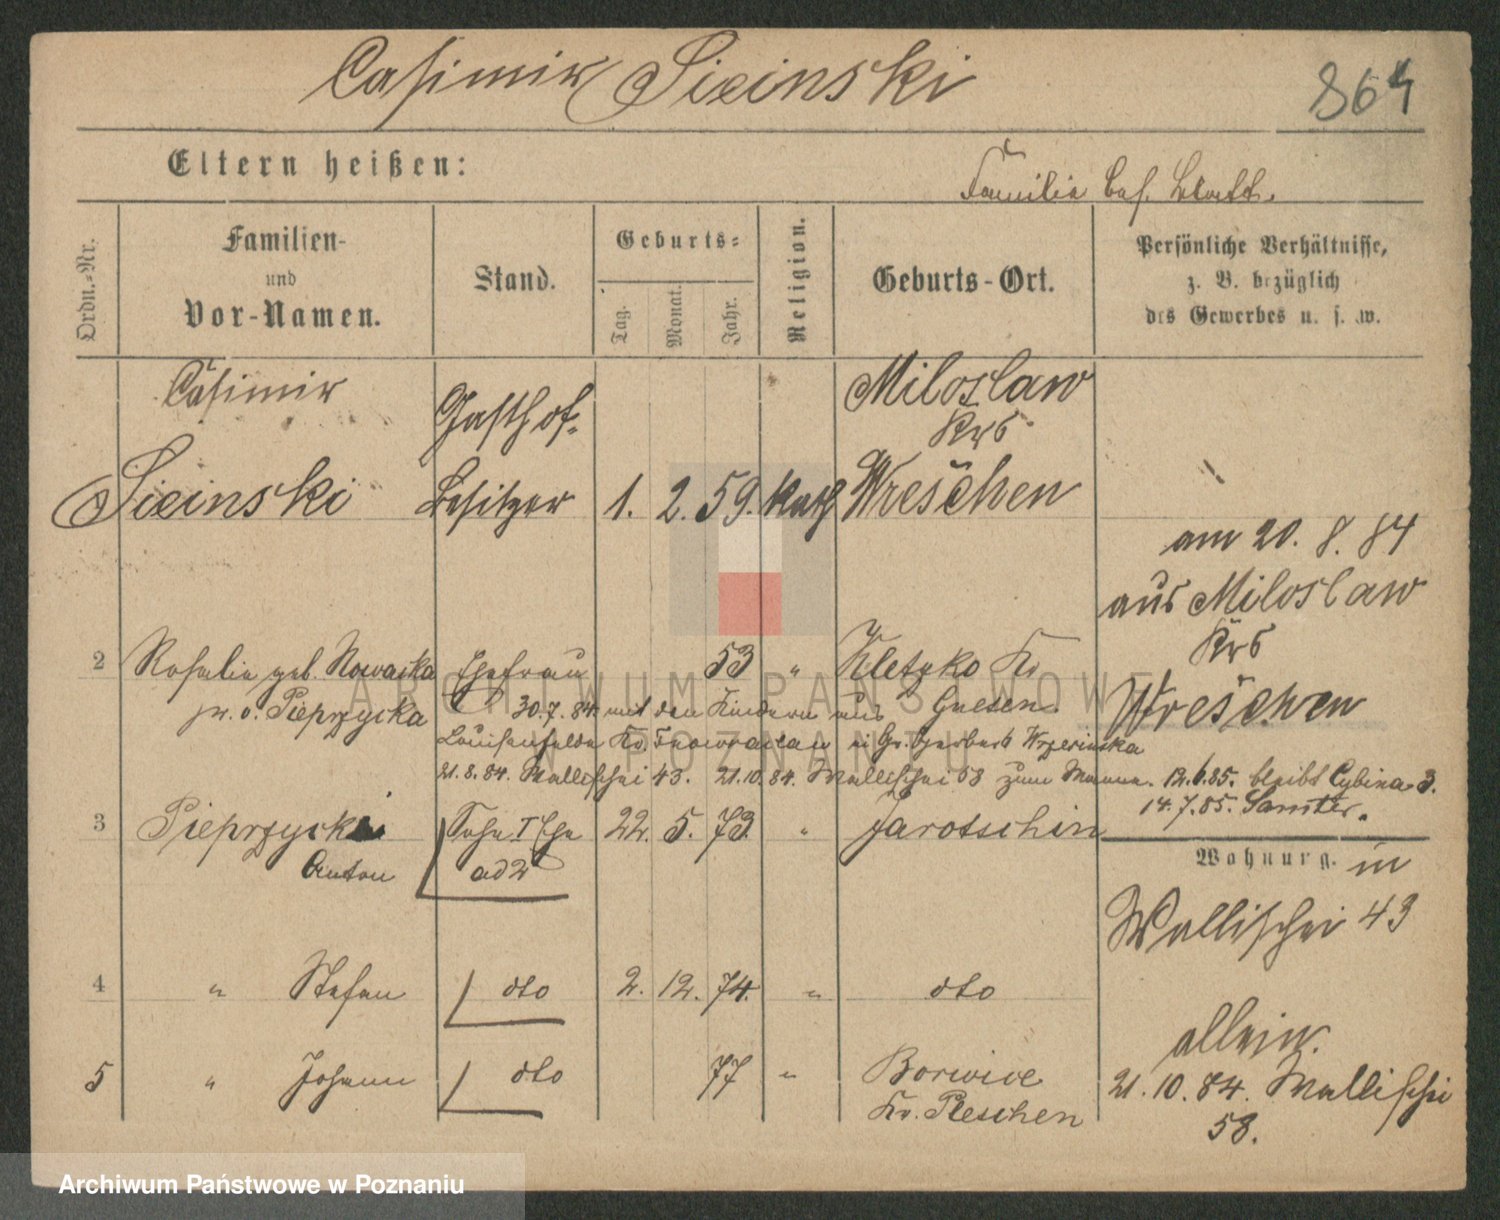 Casimir Sieinski
864
Eltern heißen:
Familie bes. Blatt.
Ordn.-Nr.
Familien-
und
Vor-Namen.
Stand.
Geburts-
Tag.
Monat.
Jahr.
Religion.
Geburts-Ort.
Persönliche Verhältnisse,
z. B. bezüglich
des Gewerbes u. s. w.
Casimir
Sieinski
Gasthof-
Besitzer
1. 2. 59. Kath
Miloslaw
Krs
Wreschen
am 20. 8. 84
aus Miloslaw
Krs
Wreschen
2 Rosalia geb. Nowacka Ehefrau 53 " Kletzko Kr
Gnesen
pr. v. Pieprzycka
30.7.84 mit den Kindern aus
Louisenfelde Kr. Inowraclaw
21.8.84. Wallischei 43. 21.10.84. Wallischei 53 zum Manne. 12.6.85. bleibt Cybina 3.
14.7.85. Samter.
3 Pieprzycki Sohn I Ehe 22. 5. 73. " Jarotschin
Anton ad 2
Wohnung. in
Wallischei 43
4 " Stefan dto 2. 12. 74. " dto
allein.
5 " Johann dto 77 "
Kr. Pleschen
21.10.84. Wallischei
53.
ARCHIWUM PAŃSTWOWE
W POZNANIU
Archiwum Państwowe w Poznaniu